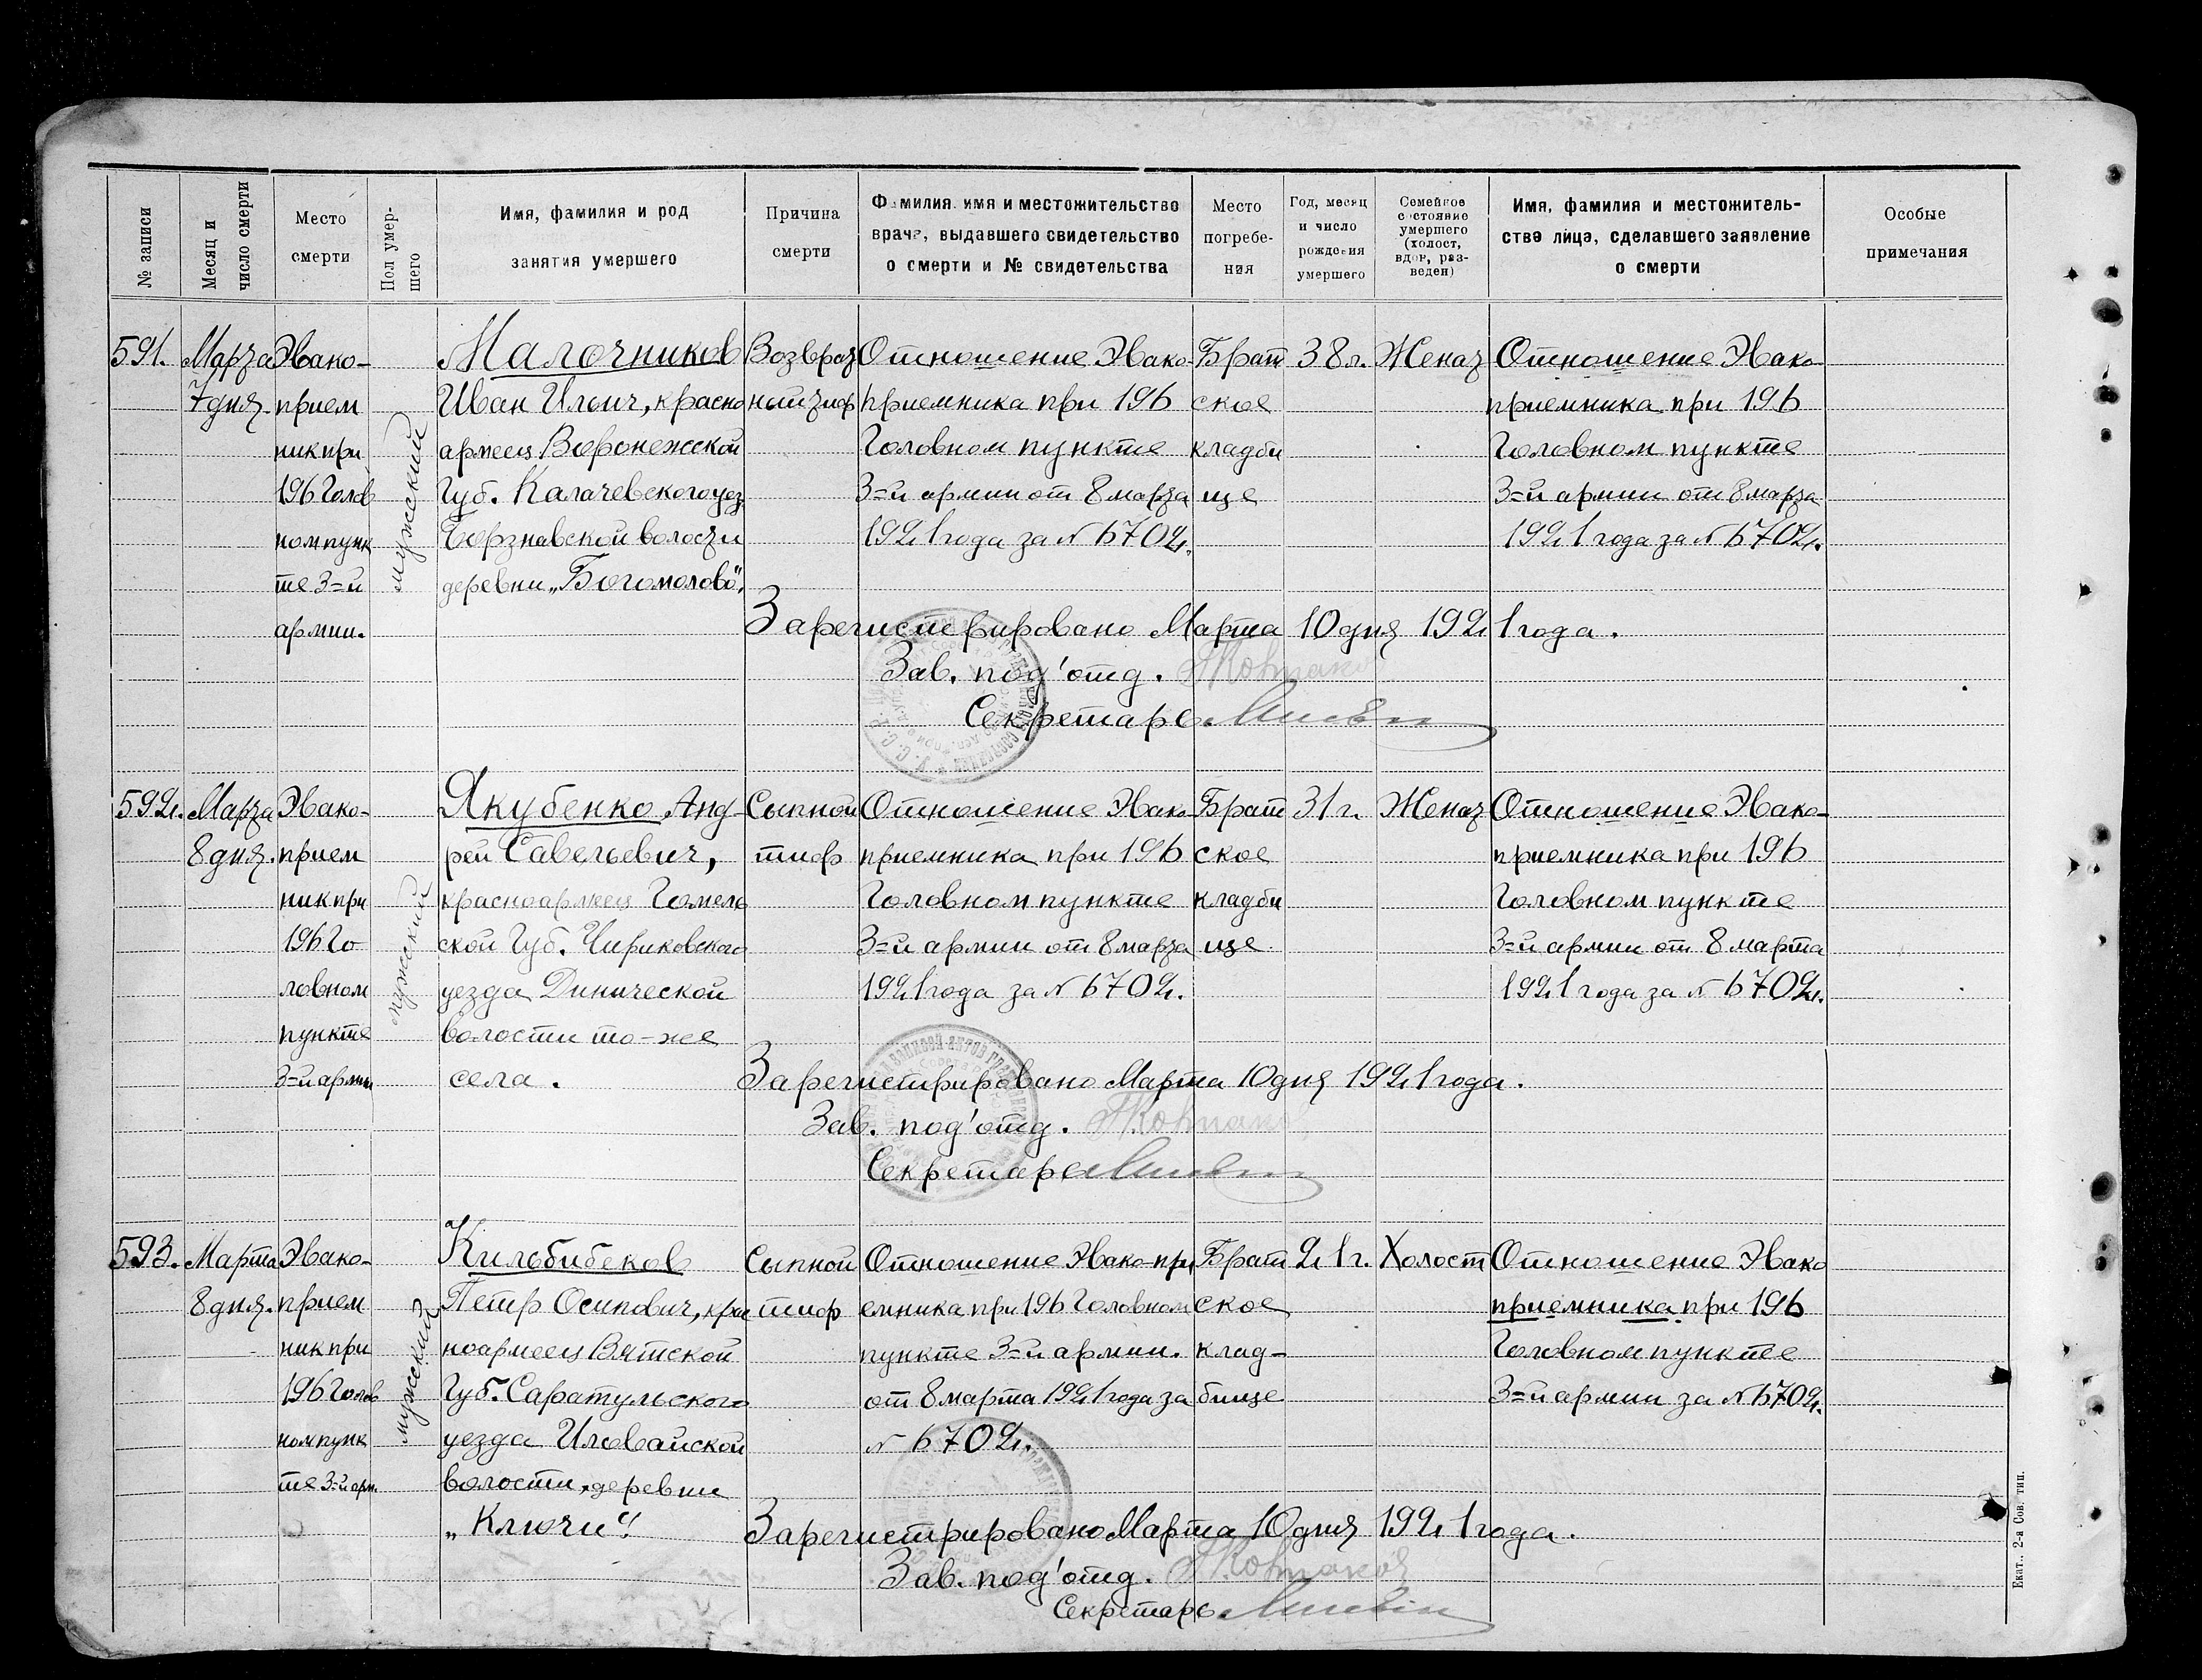 № записи
Месяц и
число смерти
Место
смерти
Пол умер-
шего
Имя, фамилия и род
занятия умершего
Причина
смерти
Фамилия имя и местожительство
врача, выдавшего свидетельство
о смерти и № свидетельства
Место
погребе-
ния
Год, месяц
и число
рождения
умершего
Семейное
состояние
умершего
(холост,
вдов, раз-
веден)
Имя, фамилия и местожитель-
ства лица, сделавшего заявление
о смерти
Особые
примечания
591.
Марта
7 дня
Эвако-
прием
ник при
196 Голов
ном пунк
те 3=й
армии.
мужский
Малочников
Иван Ильич, красно
армеец Воронежской
Губ. Калачевского уез.
волости
деревни „Богомолово".
Возврат
ный тиф
Отношение Эвако-
приемника при 196
Головном пункте
3=й армии от 8 марта
1921 года за № 6702.
Брат
ское
кладби
ще
38 л.
Женат
Отношение Эвако-
приемника при 196
Головном пункте
3=й армии от 8 марта
1921 года за № 6702.
Зарегистрировано Марта 10 дня 1921 года.
Зав. под'отд.
Секретарь
592.
Марта
8 дня.
Эвако-
прием
ник при
196 Го
ловном
пункте
3=й армии
мужский
Якубенко Анд-
рей Савельевич,
красноармеец Гомель
ской Губ. Чириковского
уезда Динической
волости то-же
села.
Сыпной
тиф
Отношение Эвако-
приемника при 196
Головном пункте
3=й армии от 8 марта
1921 года за № 6702.
Брат
ское
кладби
ще
31 г.
Женат
Отношение Эвако-
приемника при 196
Головном пункте
3=й армии от 8 марта
1921 года за № 6702.
Зарегистрировано Марта 10 дня 1921 года.
Зав. под'отд.
Секретарь
593.
Марта
8 дня.
Эвако-
прием
ник при
196 Голов
ном пунк
те 3=й арм.
мужский
Кильбибеков
Петр Осипович, крас
ноармеец Вятской
Губ. Саратульского
уезда Иловайской
волости, деревни
„Ключи".
Сыпной
тиф
Отношение Эвако-при
емника при 196 Головном
пункте 3=й армии.
от 8 марта 1921 года за
№ 6702.
Брат
ское
клад-
бище
21 г.
Холост
Отношение Эвако
приемника при 196
Головном пункте
3=й армии за № 6702.
Зарегистрировано Марта 10 дня 1921 года.
Зав. под'отд.
Секретарь
Екат.. 2-а Сов. тип.